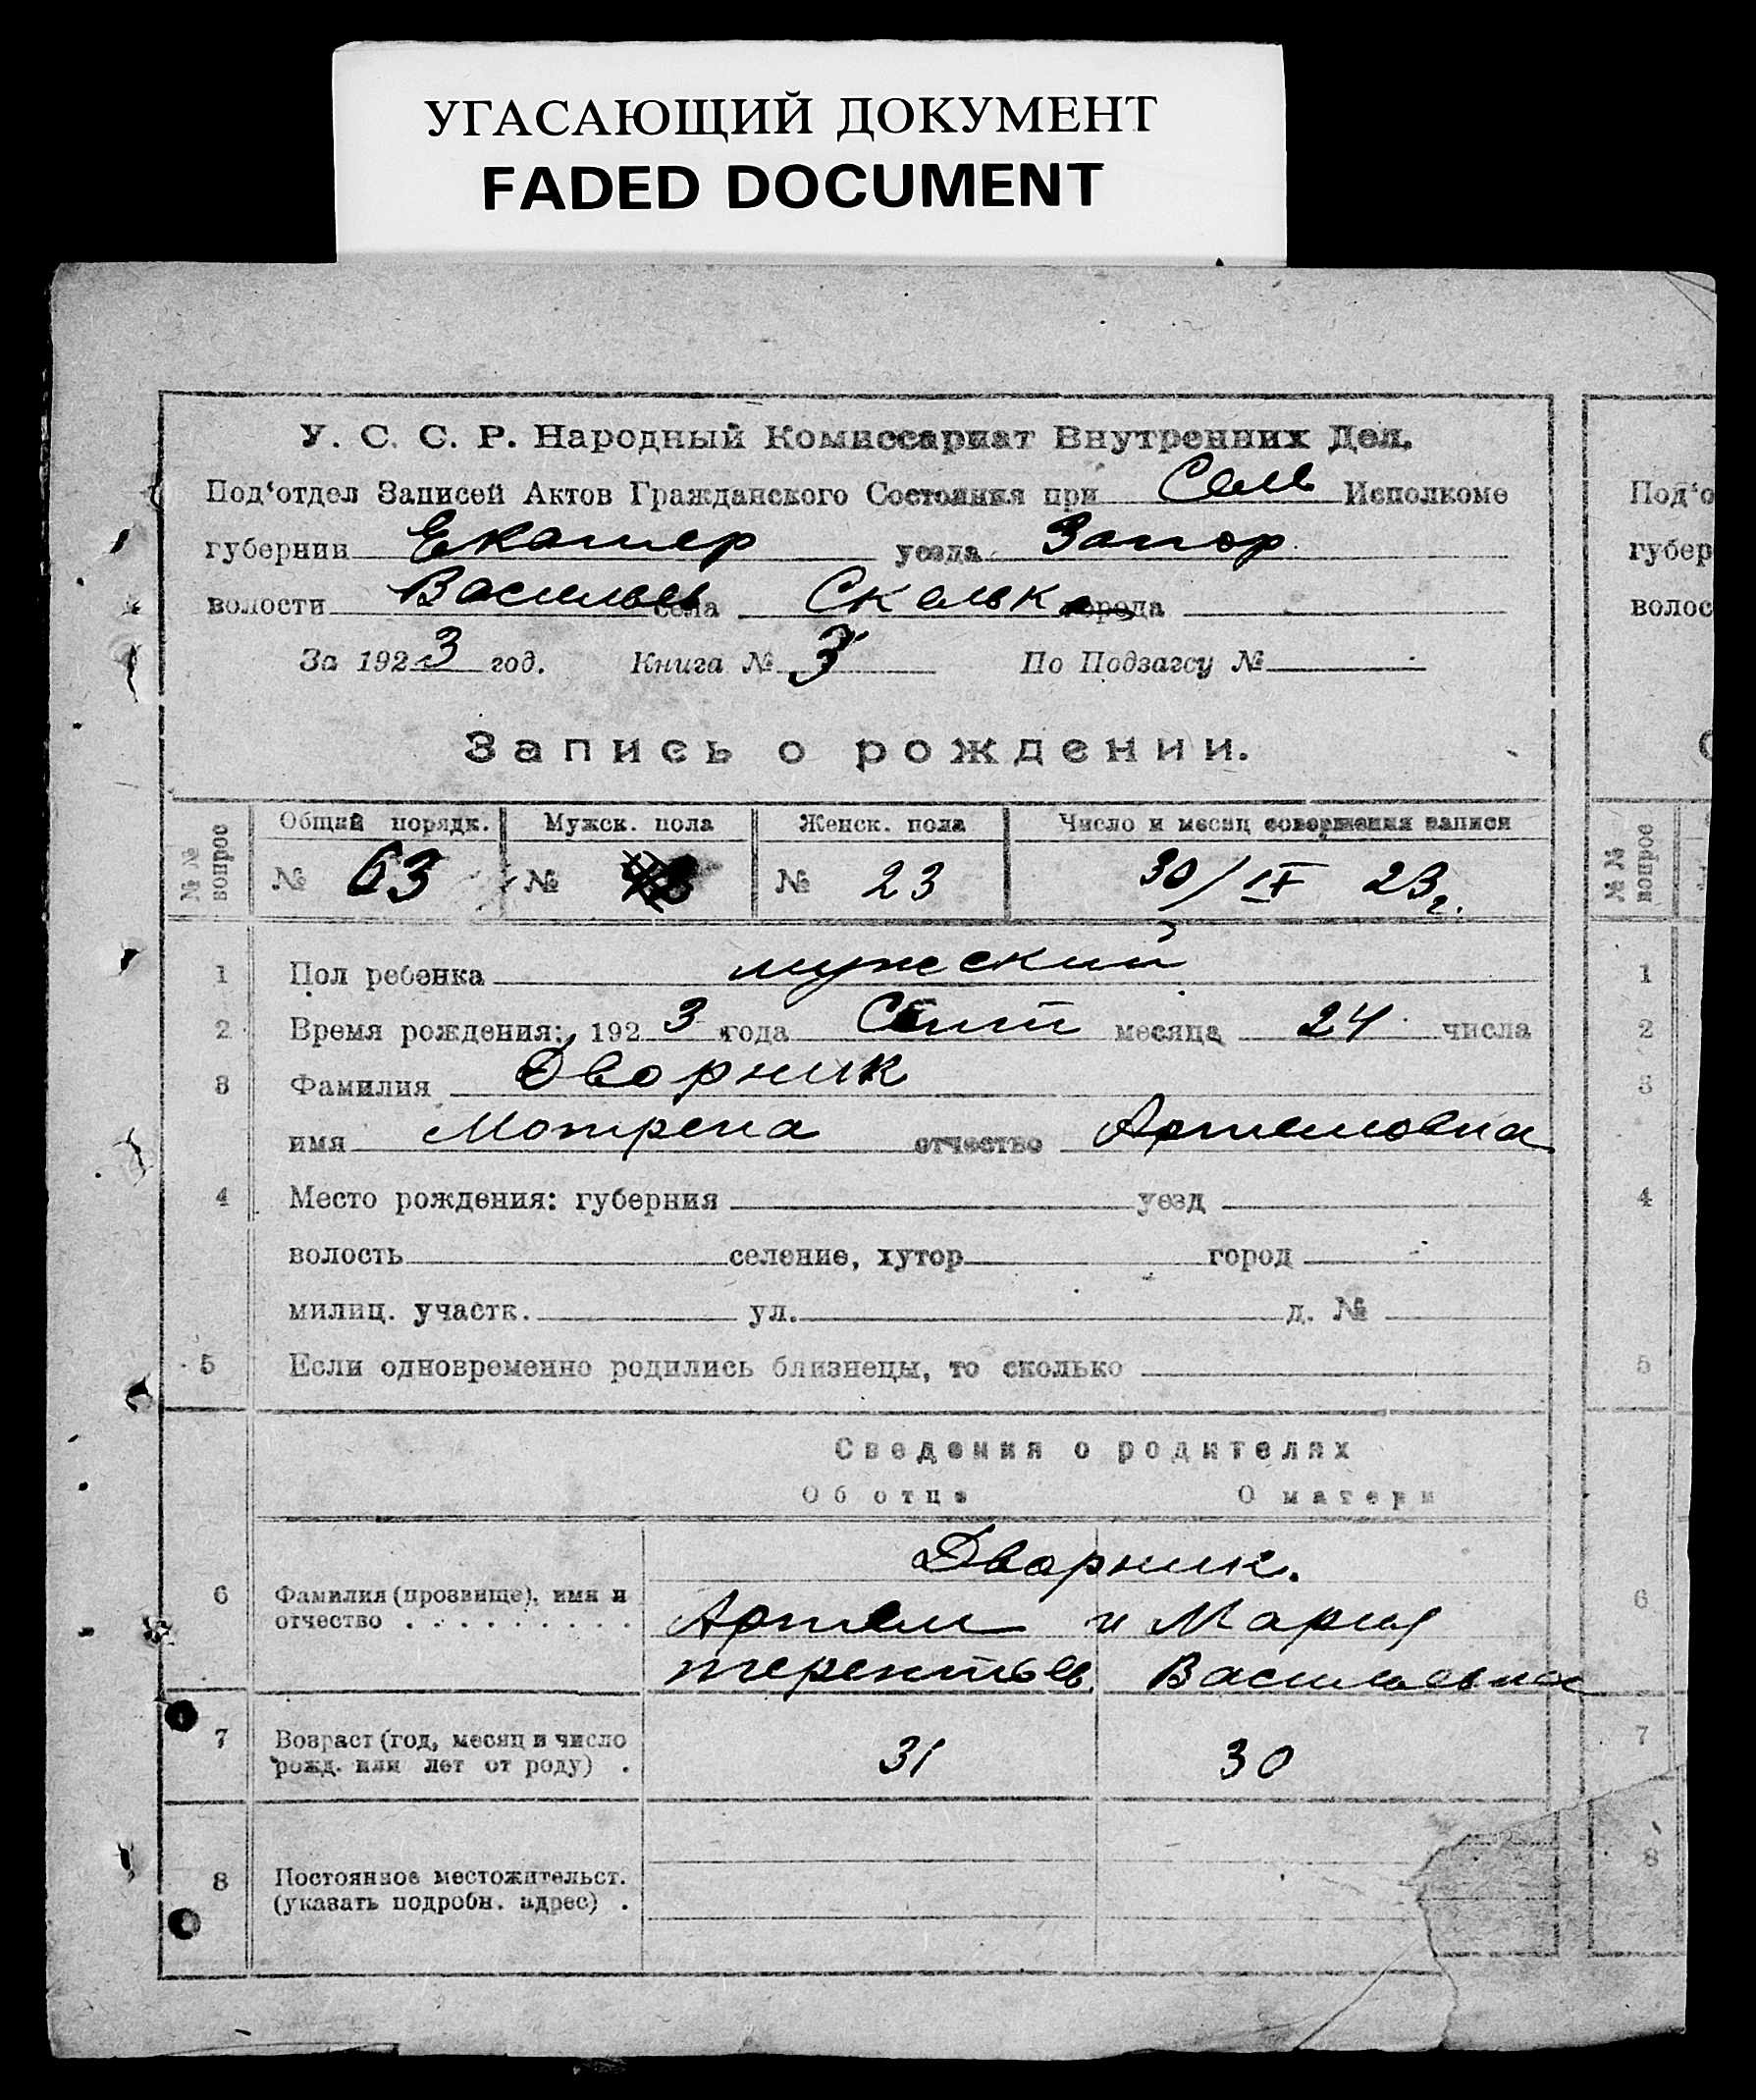 УГАСАЮЩИЙ ДОКУМЕНТ
FADED DOCUMENT
У. С. С. Р. Народный Комиссариат Внутренних Дел.
Под‘отдел Записей Актов Гражданского Состояния при Сель Исполкоме
губернии Екатер уезда Запор
волости Васильев села Скельк города
За 1923 год. Книга № 3 По Подзагсу №
Запись о рождении.
№№ вопрос Общий порядк. Мужск. пола Женск. пола Число и месяц совершения записи
№ 63 № № 23 30/IX 23г.
1 Пол ребенка мужеский
2 Время рождения: 1923 года Сент месяца 24 числа
3 Фамилия Дворник
имя Мотрена отчество Артемовна
4 Место рождения: губерния уезд
волость селение, хутор город
милиц. участк. ул. д. №
5 Если одновременно родились близнецы, то сколько
Сведения о родителях
Об отце О матери
Дворник.
6 Фамилия (прозвище), имя и
отчество . . . . . . . . . Артем и Мария
терентьев Васильевна
7 Возраст (год, месяц и число
рожд. или лет от роду) . 31 30
8 Постоянное местожительст.
(указать подробн. адрес) .
Под‘о
губер
волос
№№ вопрос
1
2
3
4
5
6
7
8